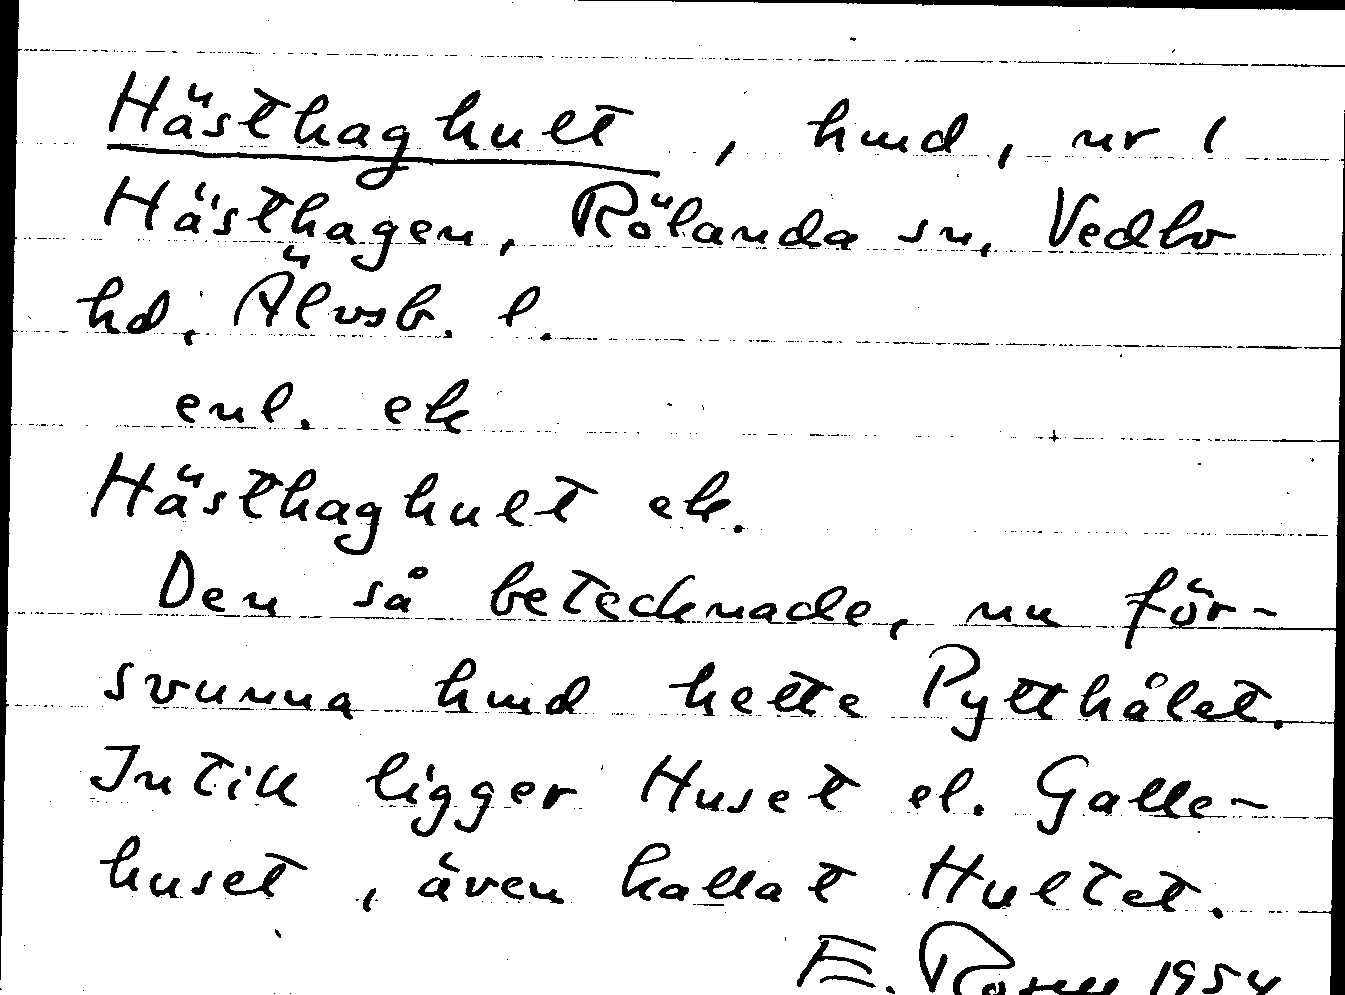 Hästhaghult, hmd, nr 1
Hästhagen, Rölanda sn, Vedbo
hd, Älvsb. l.
enl. ek
Hästhaghult ek.
Den så betecknade, nu för-
svunna hmd hette Pytthålet.
Intill ligger Huset el. Galle-
huset, även kallat Hultet.
E. Rosell 1954